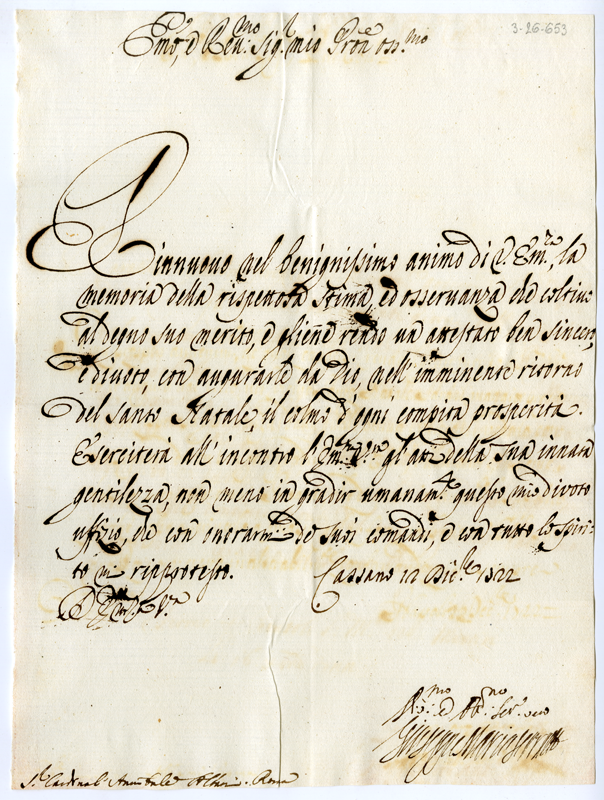 3-26-653
Em̃o, e Reu:mo Sig.r mio Pron̄ oss.mo
Rinnuouo nel benignissimo animo di V. Em.za, la
memoria della rispettosa stima, ed osseruanza che coltiuo
al degno suo merito, e gliene rendo un attestato ben sincero,
e diuoto, con augurarle da Dio, nell'imminente ritorno
del Santo Natale, il colmo d'ogni compita prosperità.
Eserciterà all'incontro l'Em.za V.ra gl'atti della sua innata
gentilezza, non meno in gradir umanam.te questo mio diuoto
uffizio, che con onorarmi de suoi comandi, e con tutto lo spiri-
to mi riprotesto. Cassano 12 Dic.bre 1722
D. V.
mo e no Ser. uero
Giuseppe Maria
S.r Cardinal Annibale Albani. Roma